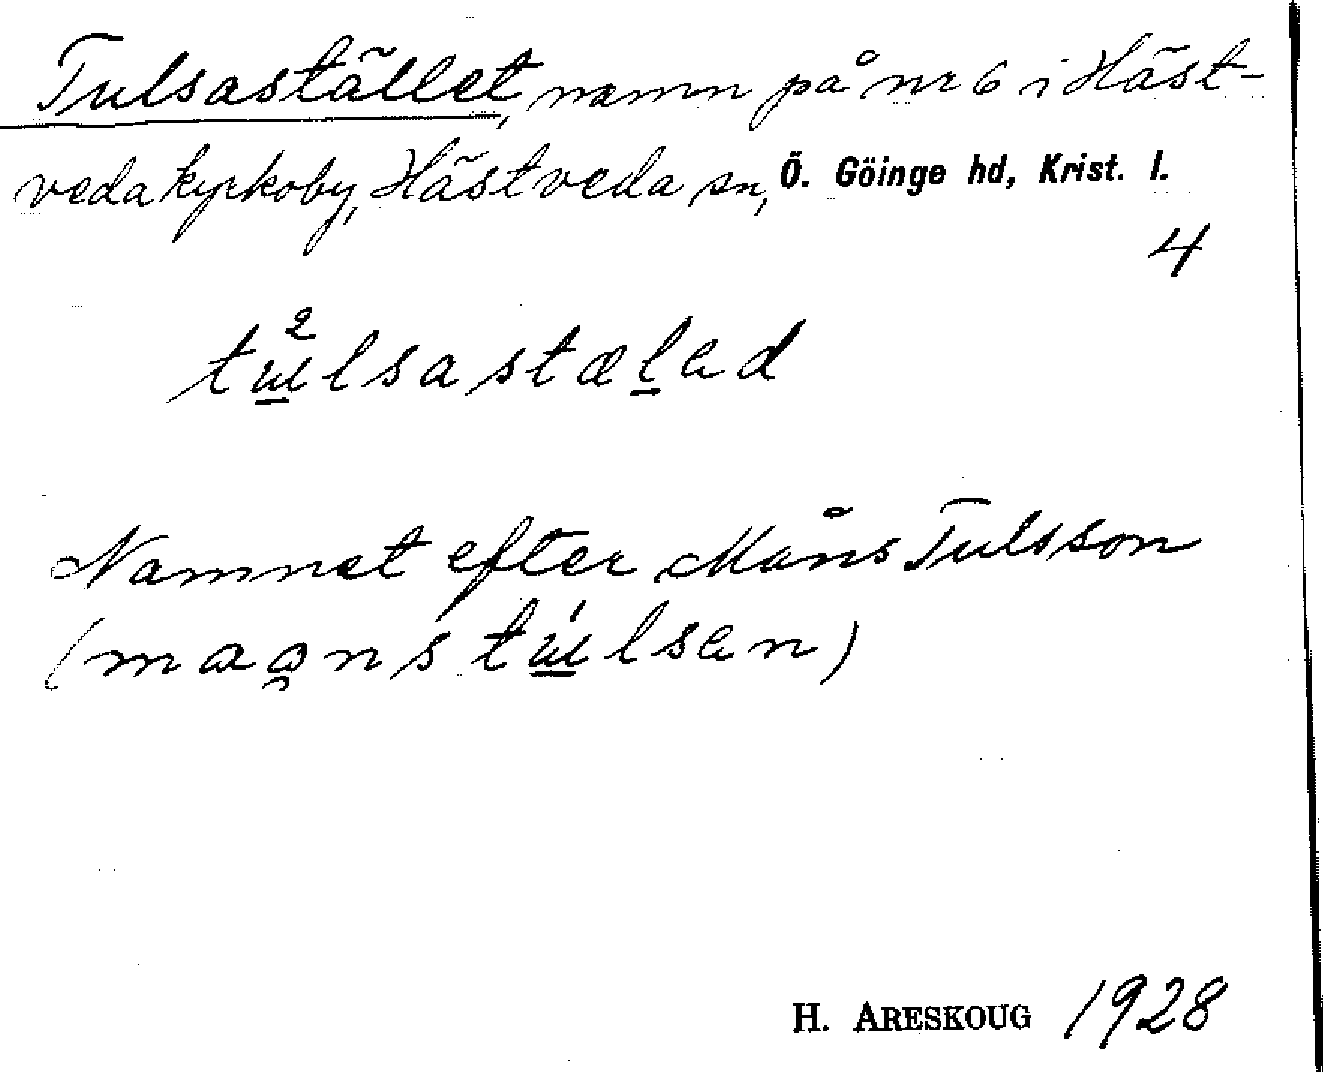 Tulsastället, namn på nr 6 i Häst-
veda kyrkoby, Hästveda sn, Ö. Göinge hd, Krist. l.
4
tu̲²lsastæl̲ad
Namnet efter Måns Tulsson
(maǫns tú̲lsan)
H. ARESKOUG 1928